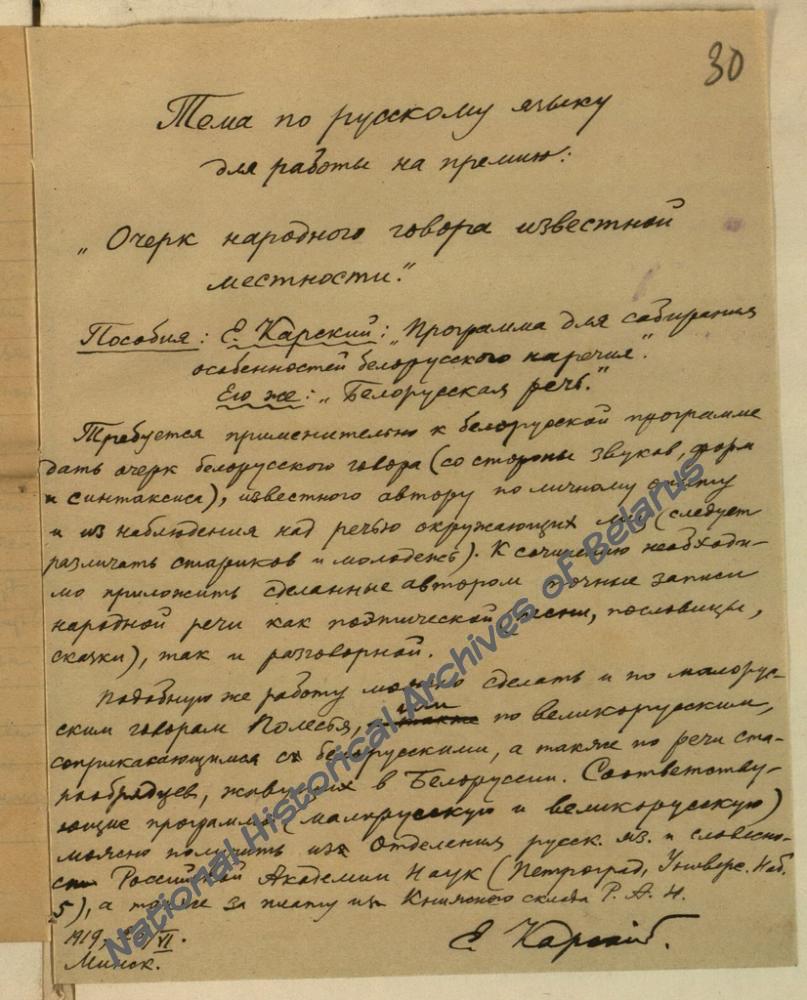 30
Тема по русскому языку
для работы на премию:
„Очерк народного говора известной
местности."
Пособия: Е. Карский: „Программа для собирания
особенностей белорусского наречия".
Его же: „Белорусская речь."
Требуется применительно к белорусской программе
дать очерк белорусского говора (со стороны звуков, форм
и синтаксиса), известного автору по личному опыту
и из наблюдения над речью окружающих лиц (следует
различать стариков и молодежь). К сочинению необходи-
мо приложить сделанные автором точные записи
народной речи как поэтической (песни, пословицы,
сказки), так и разговорной.
Подобную же работу можно сделать и по малорус-
ским говорам Полесья, или по великорусским,
соприкасающимся с белорусскими, а также по речи ста-
рообрядцев, живущих в Белоруссии. Соответству-
ющие программы (малорусскую и великорусскую)
можно получить из Отделения русск. яз. и словесно-
сти Российской Академии Наук (Петроград, Универс. Наб.
5), а также за плату из Книжного склада Р. А. Н.
1919, VI.
Минск.
Е. Карский.
National Historical Archives of Belarus